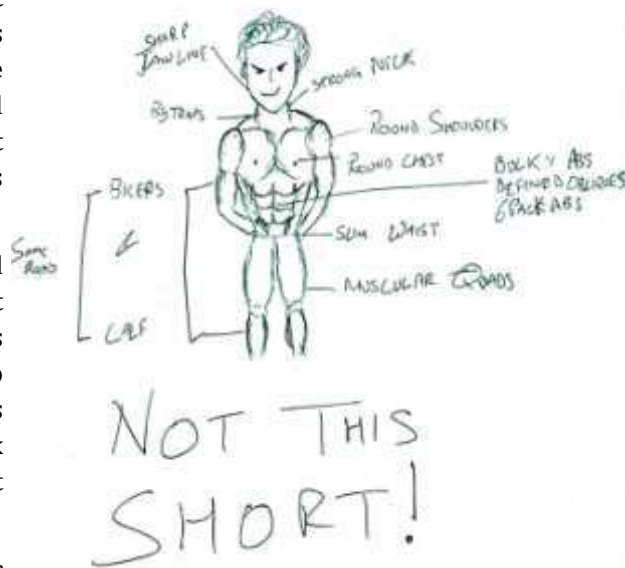 SHARP
JAWLINE
STRONG NECK
BIG TRAPS
ROUND SHOULDERS
ROUND CHEST
BULKY ABS
DEFINED OBLIQUES
6 PACK ABS
BICEPS
SLIM WAIST
SAME
MUSCULAR QUADS
CALF
NOT THIS
SHORT!